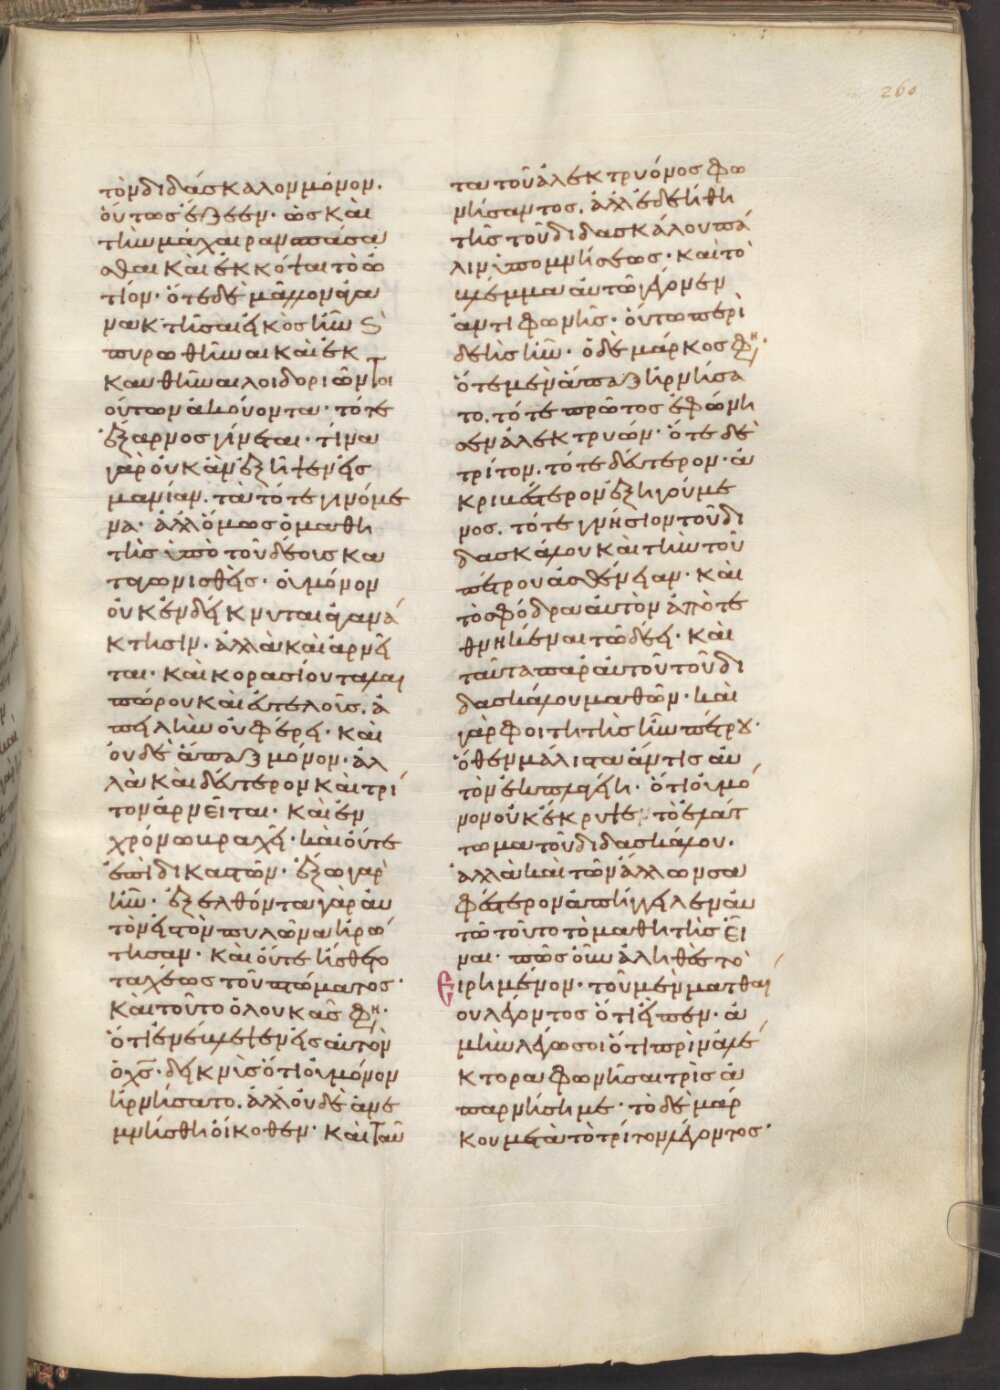 260
τὸν διδάσκαλον μόνον.
οὕτως ἔζεεν· ὡς καὶ
τὴν μάχαιραν σπάσα
σθαι καὶ ἐκκόψαι τὸ ὠ
τίον· ὅτε δὲ μᾶλλον ἀγα
νακτῆσαι εἰκὸς ἦν (καὶ)
πυρωθῆναι καὶ ἐκ
καυθῆναι λοιδοριῶν τοι
ούτων ἀκούοντα· τότε
ἔξαρνος γίνεται· τίνα
γὰρ οὐκ ἂν ἐξῆψεν εἰς
μανίαν. τὰ τότε γινόμε
να· ἀλλ' ὅμως ὁ μαθη
τὴς ὑπὸ τοῦ δέους κα
ταγωνισθεὶς· οὐ μόνον
οὐκ ἐνδείκνυται ἀγανά
κτησιν· ἀλλὰ καὶ ἀρνεῖ
ται· καὶ κορασίου ταλαι
πώρου καὶ εὐτελοῦς. ἀ
πειλὴν οὐ φέρει· καὶ
οὐδὲ ἅπαξ μόνον· ἀλ
λὰ καὶ δεύτερον καὶ τρί
τον ἀρνεῖται· καὶ ἐν
χρόνω βραχεῖ· καὶ οὔτε
ἐπὶ δικαστῶν· ἔξω γὰρ
ἦν· ἐξελθόντα γὰρ αὐ
τὸν εἰς τὸν πυλῶνα ἠρώ
τησαν· καὶ οὔτε ἤσθετο
ταχέως τοῦ πτώματος·
καὶ τοῦτο ὁ λουκᾶς φη(σίν)·
ὅτι ἐνέβλεψεν εἰς αὐτὸν
ὁ χς· δεικνὺς ὅτι οὐ μόνον
ἠρνήσατο. ἀλλ' οὐδὲ ἀνε
μνήσθη οἴκοθεν· καὶ ταῦ
τα τοῦ ἀλεκτρυόνος φω
νήσαντος. ἀλλ' ἐδεήθη
τῆς τοῦ διδασκάλου πά
λιν ὑπομνήσεως· καὶ τὸ
βλέμμα αὐτῶ γέγονεν
ἀντὶ φωνῆς· οὕτω περι
δεὴς ἦν· ὁ δὲ μάρκος φη(σίν)·
ὅτε μὲν ἅπαξ ἠρνήσα
το. τότε πρῶτος ἐφώνη
σεν ἀλεκτρυών· ὅτε δὲ
τρίτον. τότε δεύτερον· ἀ
κριβέστερον ἐξηγούμε
νος. τότε γνήσιον τοῦ δι
δασκάλου καὶ τὴν τοῦ
πέτρου ἀσθένειαν· καὶ
τὸ σφόδρα αὐτὸν ἀποτε
θνηκέναι τῶ δέει· καὶ
ταῦτα παρ' αὐτοῦ τοῦ δι
δασκάλου μαθὼν· καὶ
γὰρ φοιτητὴς ἦν πέτρου·
ὅθεν μάλιστα ἄν τις αὐ
τὸν ἐκπλαγείη· ὅτι οὐ μό
νον οὐκ ἔκρυψε τὸ ἐλάτ
τωμα τοῦ διδασκάλου.
ἀλλὰ καὶ τῶν ἄλλων σα
φέστερον ἀπήγγειλεν αὐ
τῶ τούτο τὸ μαθητὴς εἶ
ναι· πῶς οὖν ἀληθὲς τὸ
εἰρημένον· τοῦ μὲν ματθαί
ου λέγοντος ὅτι εἶπεν· ἀ
μὴν λέγω σοι ὅτι πρὶν ἀλέ
κτορα φωνῆσαι τρὶς ἀ
παρνήση με· τὸ δὲ μάρ
κου μετὰ τὸ τρίτον λέγοντος·